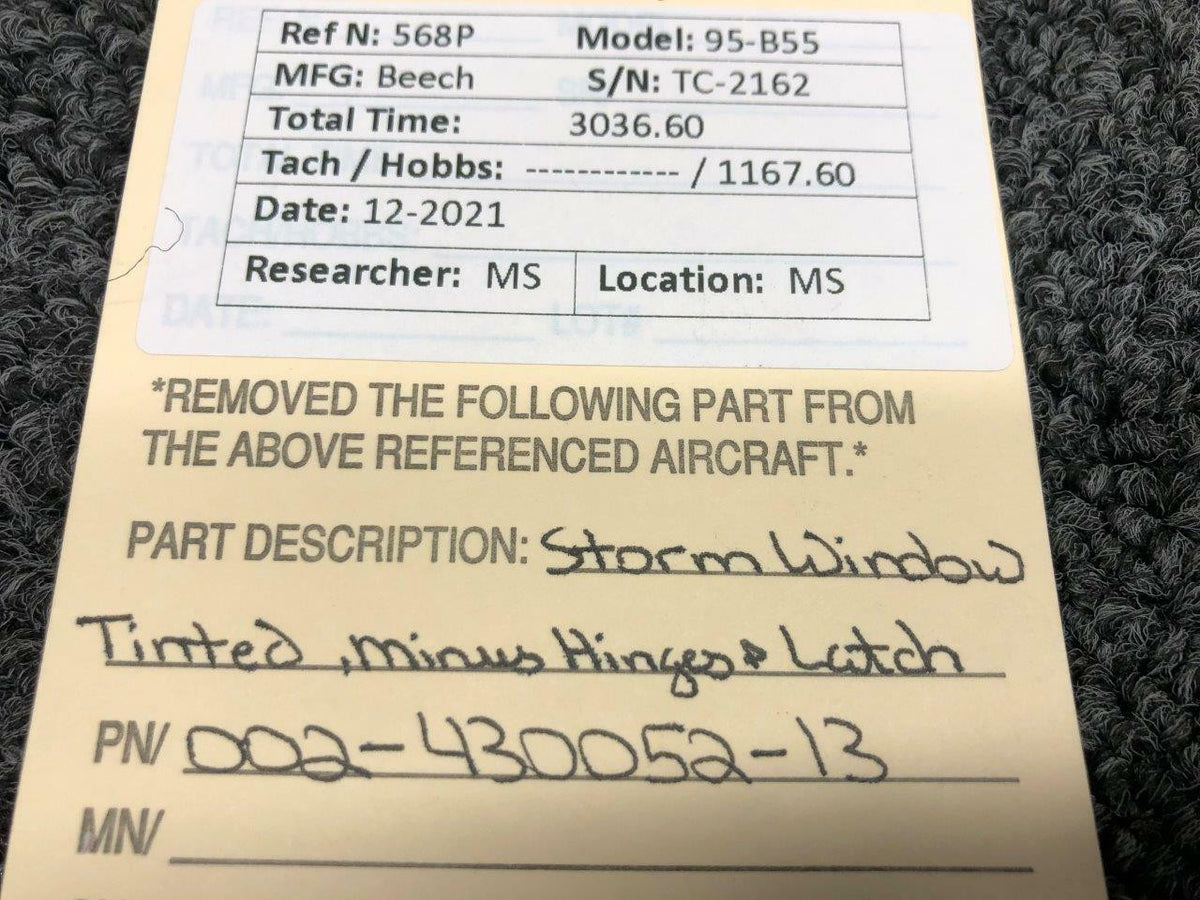 Ref N: 568P Model: 95-B55
MFG: Beech S/N: TC-2162
Total Time: 3036.60
Tach / Hobbs: ------------ / 1167.60
Date: 12-2021
Researcher: MS Location: MS
DATE: LOT#
*REMOVED THE FOLLOWING PART FROM
THE ABOVE REFERENCED AIRCRAFT.*
PART DESCRIPTION: Storm Window
Tinted, minus Hinges & Latch
PN/ 002-430052-13
MN/